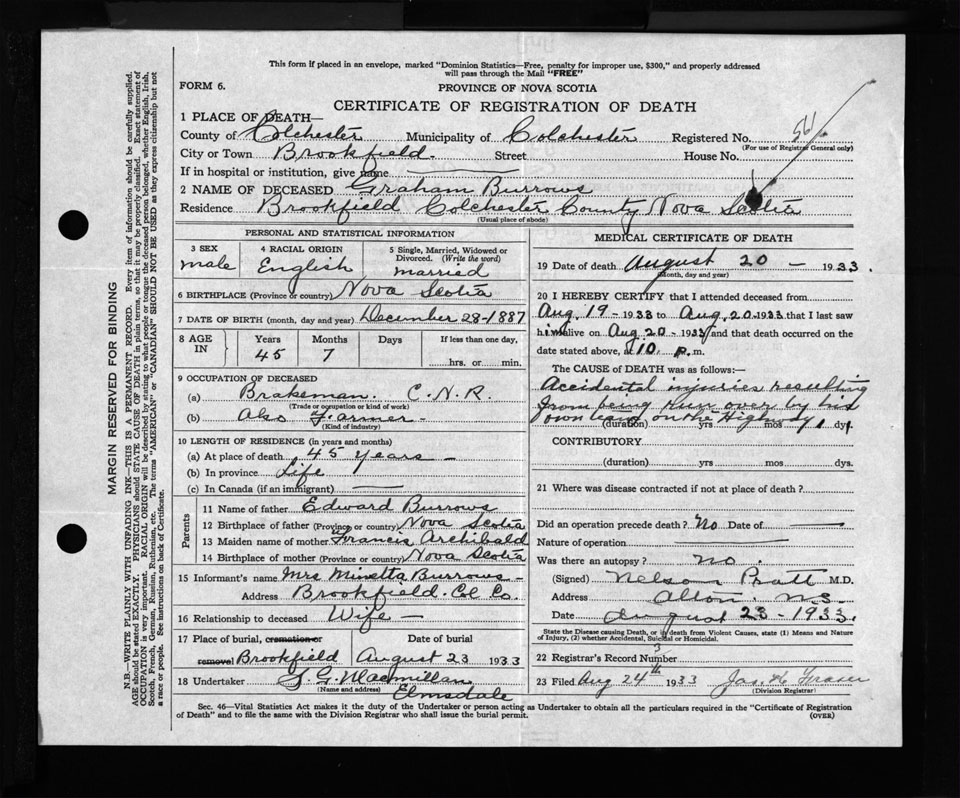 This form if placed in an envelope, marked "Dominion Statistics—Free, penalty for improper use, $300," and properly addressed
will pass through the Mail "FREE"
FORM 6.
PROVINCE OF NOVA SCOTIA
CERTIFICATE OF REGISTRATION OF DEATH
1 PLACE OF DEATH—
County of Colchester Municipality of Colchester Registered No.
(For use of Registrar General only)
City or Town Brookfield Street House No.
If in hospital or institution, give name —
2 NAME OF DECEASED Graham Burrows
Residence Brookfield Colchester County Nova Scotia
(Usual place of abode)
PERSONAL AND STATISTICAL INFORMATION
3 SEX 4 RACIAL ORIGIN 5 Single, Married, Widowed or
Divorced. (Write the word)
male English married
6 BIRTHPLACE (Province or country) Nova Scotia
7 DATE OF BIRTH (month, day and year) December 28-1887
8 AGE IN Years Months Days If less than one day,
45 7 hrs. or min.
9 OCCUPATION OF DECEASED
(a) Brakeman. C.N.R.
(Trade or occupation or kind of work)
(b) Also Farmer -
(Kind of industry)
10 LENGTH OF RESIDENCE (in years and months)
(a) At place of death 45 years -
(b) In province Life
(c) In Canada (if an immigrant) —
Parents
11 Name of father Edward Burrows
12 Birthplace of father (Province or country) Nova Scotia
13 Maiden name of mother Francis Archibald
14 Birthplace of mother (Province or country) Nova Scotia
15 Informant's name Mrs Minetta Burrows -
Address Brookfield. Col Co.
16 Relationship to deceased Wife —
17 Place of burial, cremation or Date of burial
removal Brookfield August 23 1933
18 Undertaker Macmillan
(Name and address) Elmsdale
MEDICAL CERTIFICATE OF DEATH
19 Date of death August 20 - 1933.
(Month, day and year)
20 I HEREBY CERTIFY that I attended deceased from
Aug. 19 - 1933 to Aug. 20 - 1933 that I last saw
him alive on Aug 20 - 1933 and that death occurred on the
date stated above, at 10 p.m.
The CAUSE of DEATH was as follows:—
Accidental injuries resulting
from being run over by his
own team on the Highway,
(duration) yrs mos 1 dys.
CONTRIBUTORY
(duration) yrs mos dys.
21 Where was disease contracted if not at place of death?
Did an operation precede death? No Date of —
Nature of operation —
Was there an autopsy? no.
(Signed) Nelson Pratt M.D.
Address Alton. N.S.
Date August 23 - 1933.
State the Disease causing Death, or in death from Violent Causes, state (1) Means and Nature
of Injury, (2) whether Accidental, Suicidal or Homicidal.
22 Registrar's Record Number 3
23 Filed Aug 24th 1933 Jas. H Fraser
(Division Registrar)
Sec. 46—Vital Statistics Act makes it the duty of the Undertaker or person acting as Undertaker to obtain all the particulars required in the "Certificate of Registration
of Death" and to file the same with the Division Registrar who shall issue the burial permit. (OVER)
MARGIN RESERVED FOR BINDING
N.B.—WRITE PLAINLY WITH UNFADING INK—THIS IS A PERMANENT RECORD. Every item of information should be carefully supplied.
AGE should be stated EXACTLY. PHYSICIANS should STATE CAUSE OF DEATH in plain terms, so that it may be properly classified. Exact statement of
OCCUPATION is very important. RACIAL ORIGIN will be described by stating to what people or tongue the deceased person belonged, whether English, Irish,
Scotch, French, German, Russian, Ruthenian, etc. The terms "AMERICAN" or "CANADIAN" SHOULD NOT BE USED as they express citizenship but not
a race or people. See instructions on back of Certificate.